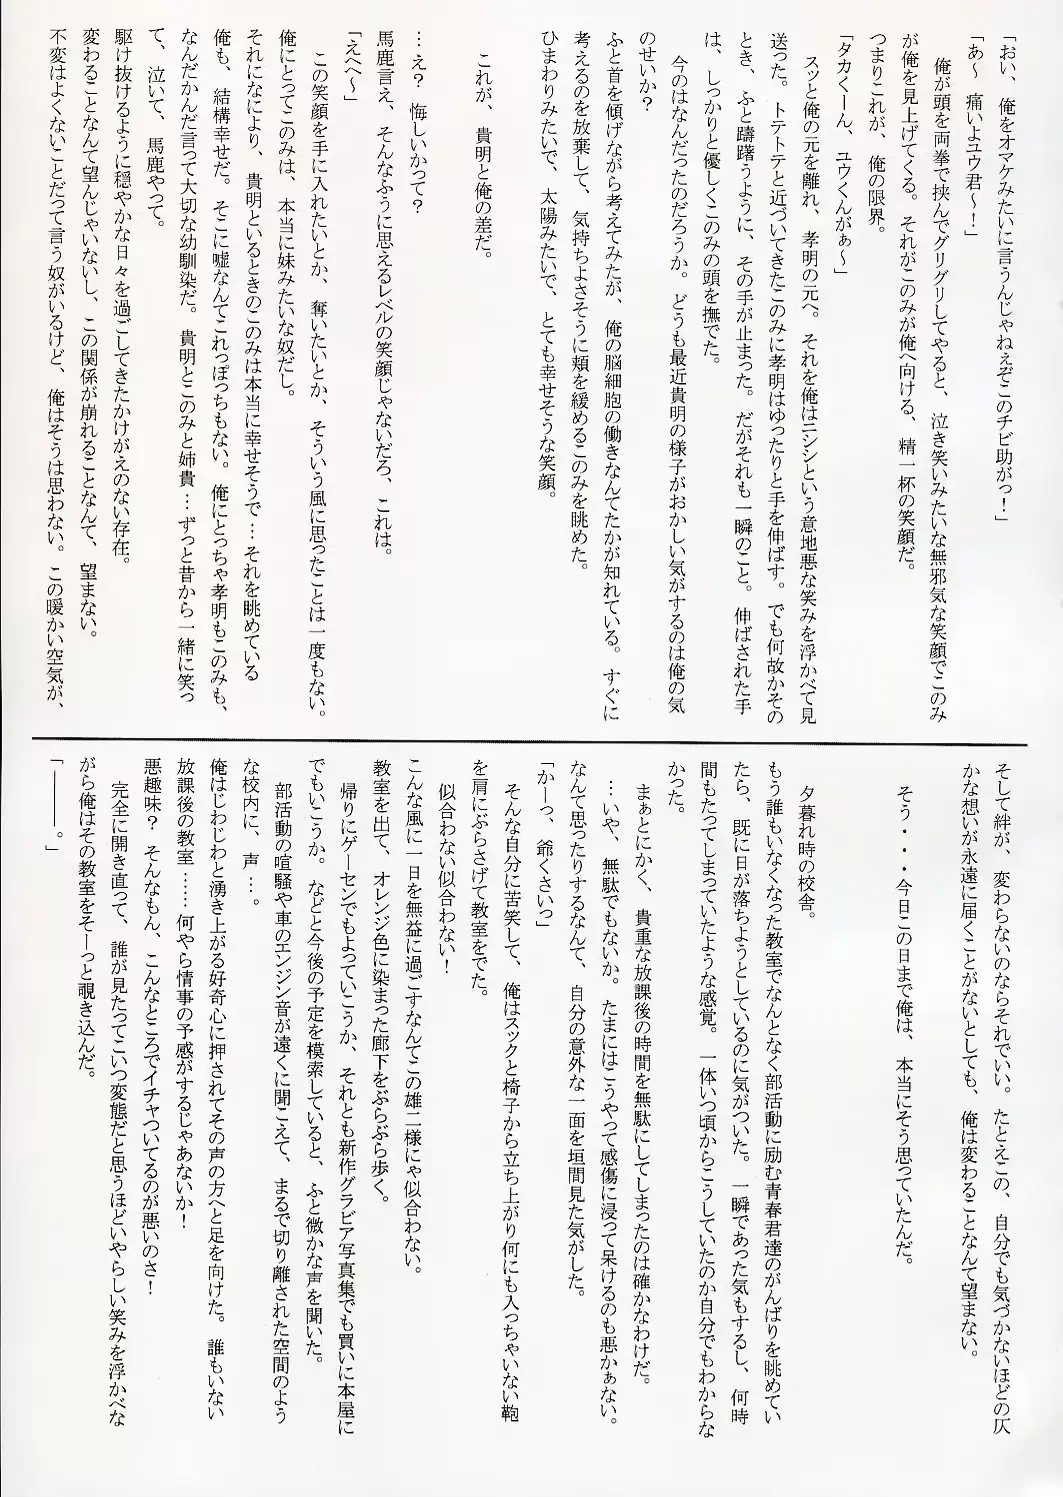 「おい、俺をオマケみたいに言うんじゃねえぞこのチビ助がっ！」
「あ～ 痛いよユウ君～！」
俺が頭を両拳で挟んでグリグリしてやると、泣き笑いみたいな無邪気な笑顔でこのみ
が俺を見上げてくる。それがこのみが俺へ向ける、精一杯の笑顔だ。
つまりこれが、俺の限界。
「タカくーん、ユウくんがぁ～」
スッと俺の元を離れ、孝明の元へ。それを俺はニシシという意地悪な笑みを浮かべて見
送った。トテトテと近づいてきたこのみに孝明はゆったりと手を伸ばす。でも何故かその
とき、ふと躊躇うように、その手が止まった。だがそれも一瞬のこと。伸ばされた手
は、しっかりと優しくこのみの頭を撫でた。
今のはなんだったのだろうか。どうも最近貴明の様子がおかしい気がするのは俺の気
のせいか？
ふと首を傾げながら考えてみたが、俺の脳細胞の働きなんてたかが知れている。すぐに
考えるのを放棄して、気持ちよさそうに頬を緩めるこのみを眺めた。
ひまわりみたいで、太陽みたいで、とても幸せそうな笑顔。
これが、貴明と俺の差だ。
…え？ 悔しいかって？
馬鹿言え、そんなふうに思えるレベルの笑顔じゃないだろ、これは。
「えへへ～」
この笑顔を手に入れたいとか、奪いたいとか、そういう風に思ったことは一度もない。
俺にとってこのみは、本当に妹みたいな奴だし。
それになにより、貴明といるときのこのみは本当に幸せそうで…それを眺めている
俺も、結構幸せだ。そこに嘘なんてこれっぽっちもない。俺にとっちゃ孝明もこのみも、
なんだかんだ言って大切な幼馴染だ。貴明とこのみと姉貴…ずっと昔から一緒に笑っ
て、泣いて、馬鹿やって。
駆け抜けるように穏やかな日々を過ごしてきたかけがえのない存在。
変わることなんて望んじゃいないし、この関係が崩れることなんて、望まない。
不変はよくないことだって言う奴がいるけど、俺はそうは思わない。この暖かい空気が、
そして絆が、変わらないのならそれでいい。たとえこの、自分でも気づかないほどの仄
かな想いが永遠に届くことがないとしても、俺は変わることなんて望まない。
そう・・・今日この日まで俺は、本当にそう思っていたんだ。
夕暮れ時の校舎。
もう誰もいなくなった教室でなんとなく部活動に励む青春君達のがんばりを眺めてい
たら、既に日が落ちようとしているのに気がついた。一瞬であった気もするし、何時
間もたってしまっていたような感覚。一体いつ頃からこうしていたのか自分でもわからな
かった。
まぁとにかく、貴重な放課後の時間を無駄にしてしまったのは確かなわけだ。
…いや、無駄でもないか。たまにはこうやって感傷に浸って呆けるのも悪かぁない。
なんて思ったりするなんて、自分の意外な一面を垣間見た気がした。
「かーっ、爺くさいっ」
そんな自分に苦笑して、俺はスックと椅子から立ち上がり何にも入っちゃいない鞄
を肩にぶらさげて教室をでた。
似合わない似合わない！
こんな風に一日を無益に過ごすなんてこの雄二様にゃ似合わない。
教室を出て、オレンジ色に染まった廊下をぶらぶら歩く。
帰りにゲーセンでもよっていこうか、それとも新作グラビア写真集でも買いに本屋に
でもいこうか。などと今後の予定を模索していると、ふと微かな声を聞いた。
部活動の喧騒や車のエンジン音が遠くに聞こえて、まるで切り離された空間のよう
な校内に、声…。
俺はじわじわと湧き上がる好奇心に押されてその声の方へと足を向けた。誰もいない
放課後の教室……何やら情事の予感がするじゃあないか！
悪趣味？ そんなもん、こんなところでイチャついてるのが悪いのさ！
完全に開き直って、誰が見たってこいつ変態だと思うほどいやらしい笑みを浮かべな
がら俺はその教室をそーっと覗き込んだ。
「―――。」